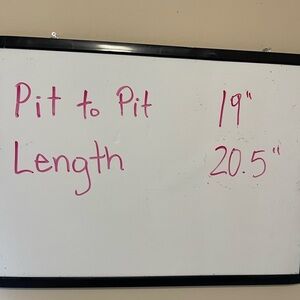 Pit to Pit 19"
Length 20.5"